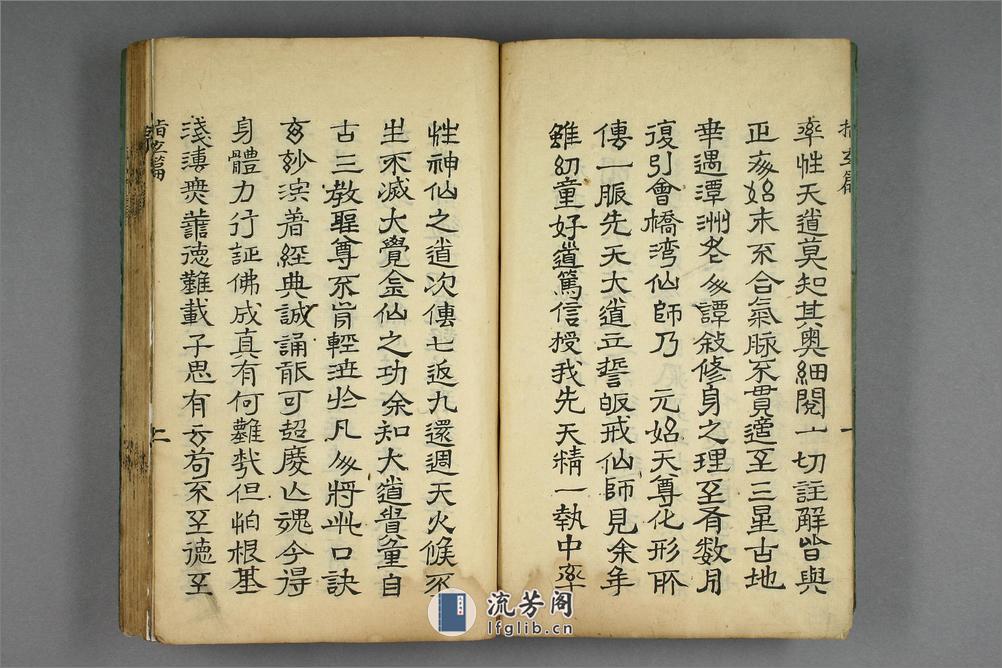 指玄篇
率性天道莫知其奧細閱一切註解皆與
正文始末不合氣脉不貫適至三星古地
幸遇潭洲老人譚敍修身之理至有數月
復引會橋湾仙師乃 元始天尊化形所
傳一脈先天大道立誓皈戒仙師見余年
雖幼童好道篤信授我先天精一執中率
一
性神仙之道次傳七返九還週天火候不
生不滅大覺金仙之功余知大道貴重自
古三教聖尊不肯輕泄於凡人將此口訣
玄妙深著經典誠誦能可超度亡魂今得
身體力行証佛成真有何難哉但怕根基
淺薄無德難載子思有云苟不至德至
指玄篇
二
流芳阁
lfglib.cn